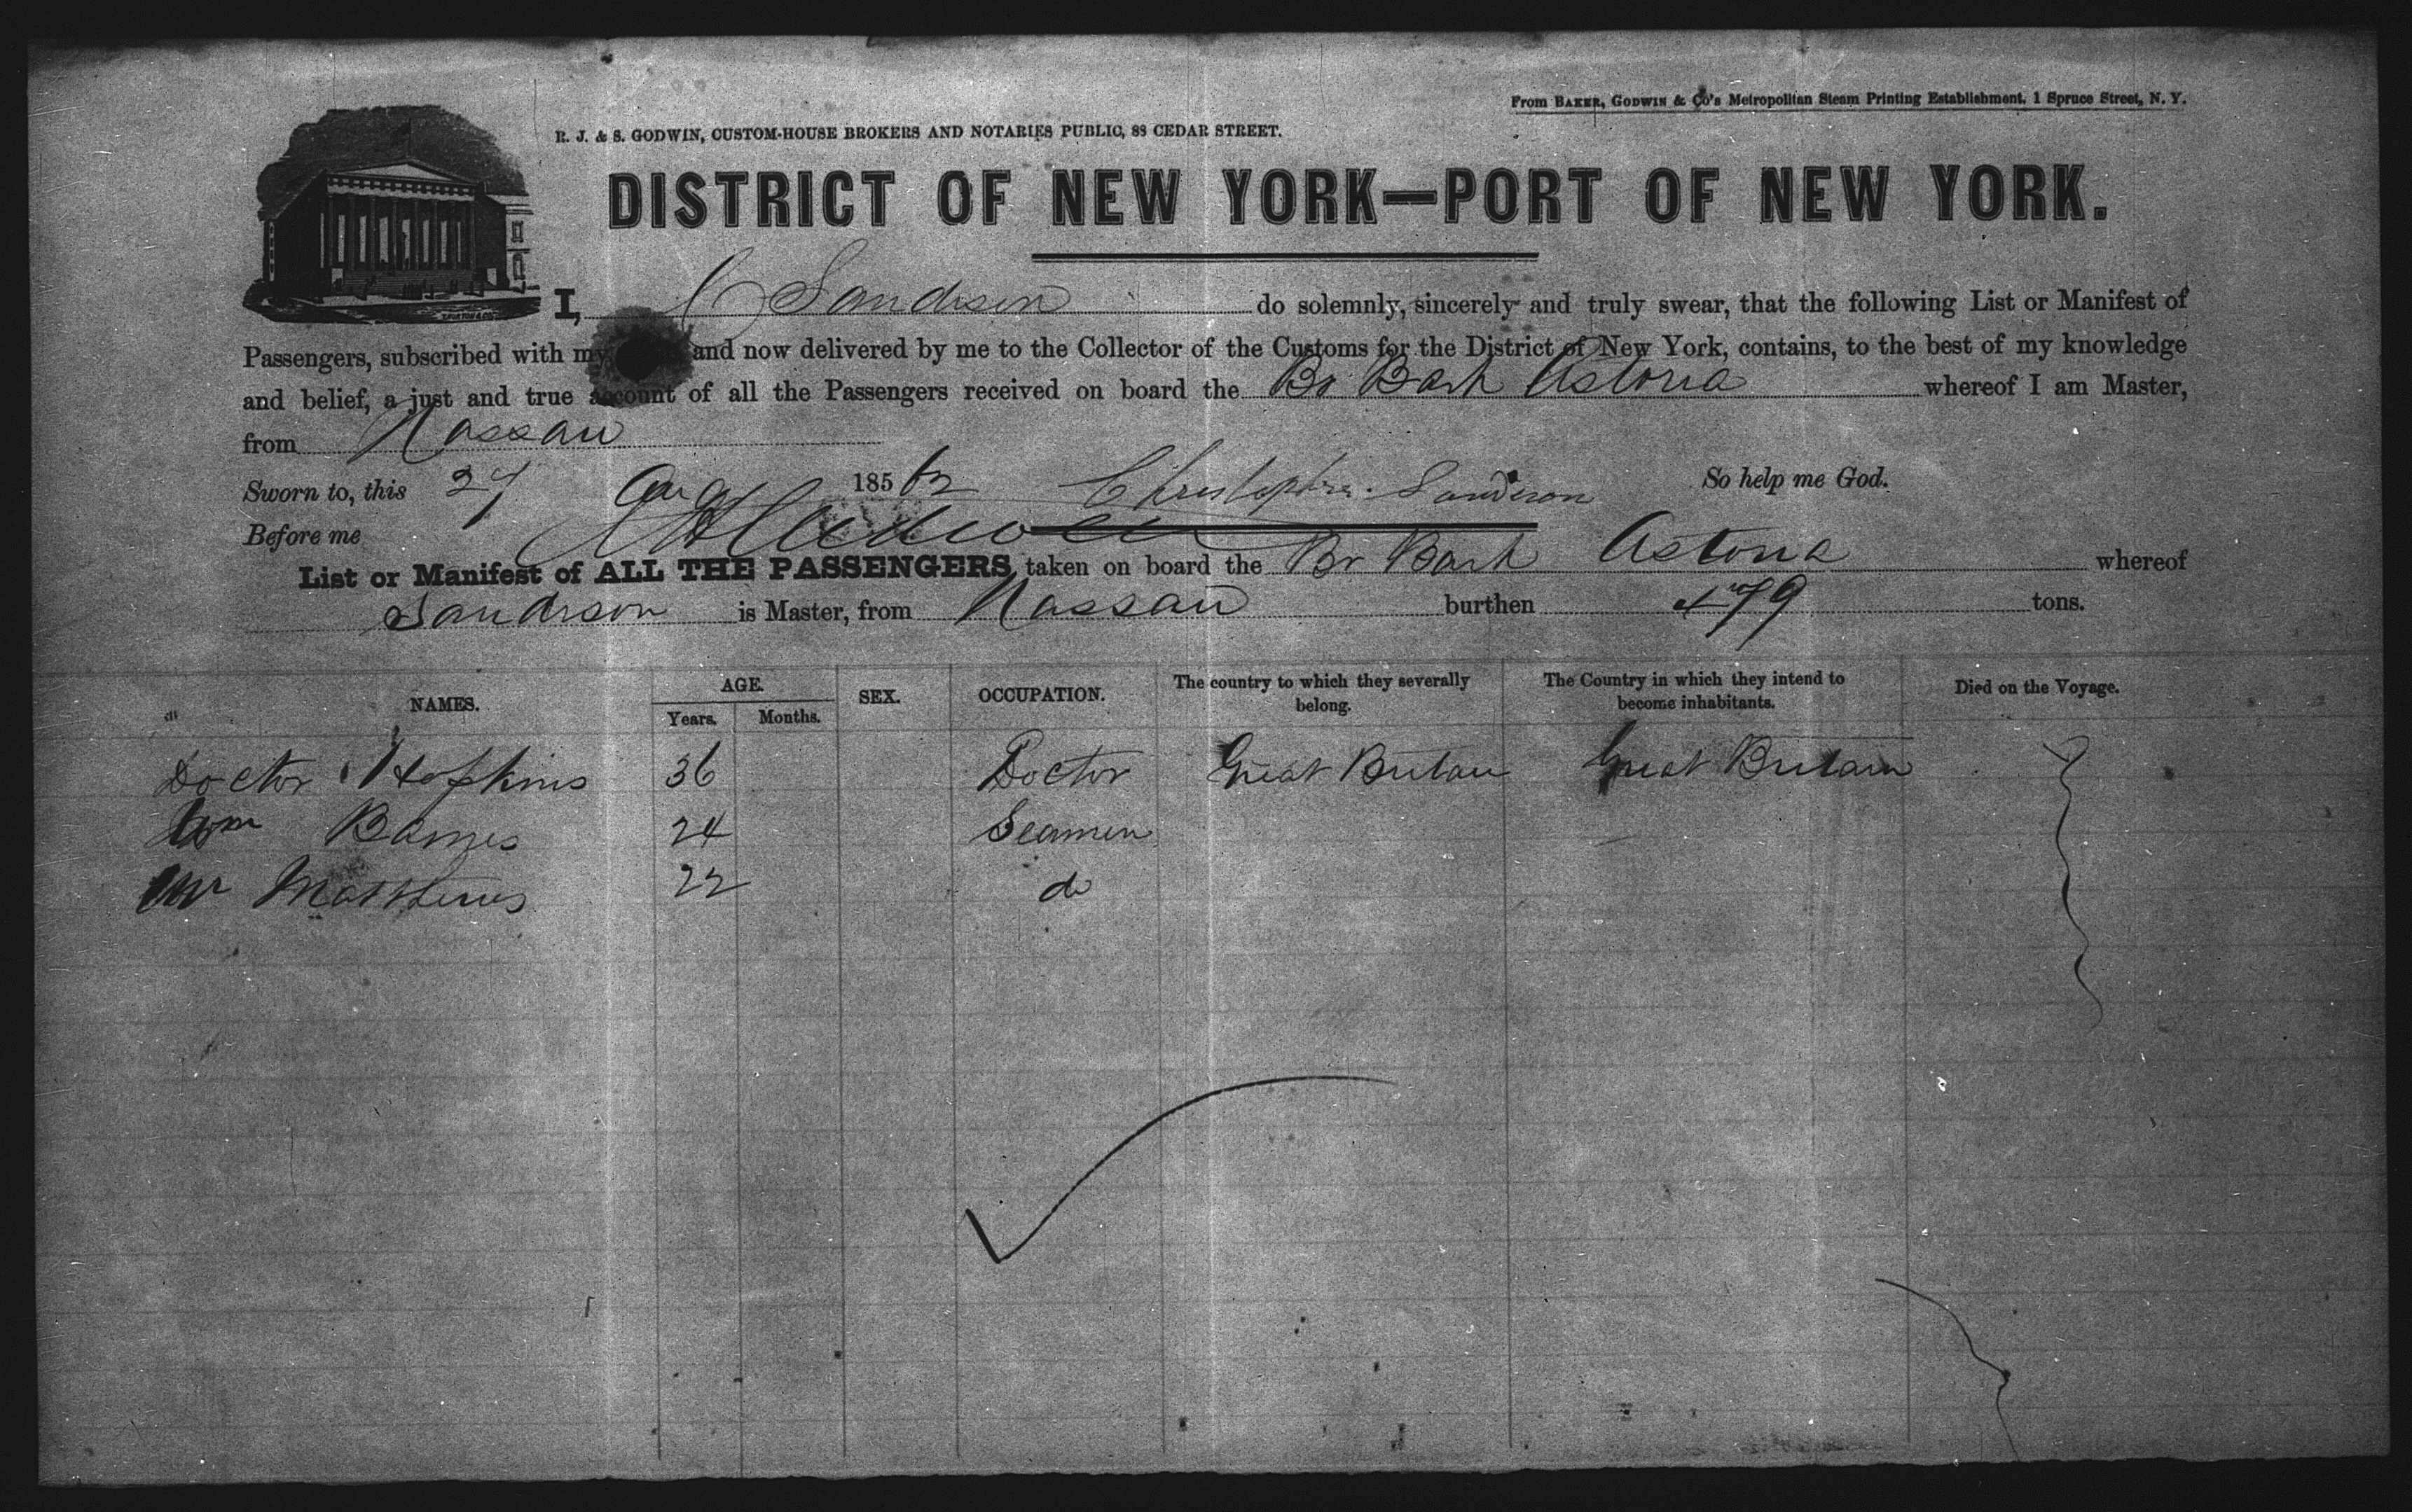 From BAKER, GODWIN & Co's Metropolitan Steam Printing Establishment, 1 Spruce Street, N. Y.
R. J. & S. GODWIN, CUSTOM-HOUSE BROKERS AND NOTARIES PUBLIC, 88 CEDAR STREET.
DISTRICT OF NEW YORK—PORT OF NEW YORK.
I, C Sandison do solemnly, sincerely and truly swear, that the following List or Manifest of
Passengers, subscribed with my and now delivered by me to the Collector of the Customs for the District of New York, contains, to the best of my knowledge
and belief, a just and true account of all the Passengers received on board the Br Bark Astoria whereof I am Master,
from Nassau
Sworn to, this 27 Aug 1862 Christopher Sandison So help me God.
Before me
List or Manifest of ALL THE PASSENGERS taken on board the Br Bark Astoria whereof
Sandison is Master, from Nassau burthen 479 tons.
NAMES. AGE. Years. Months. SEX. OCCUPATION. The country to which they severally belong. The Country in which they intend to become inhabitants. Died on the Voyage.
Doctor Hopkins 36 Doctor Great Britain Great Britain
Wm Barnes 24 Seamen
Wm Matthews 22 do